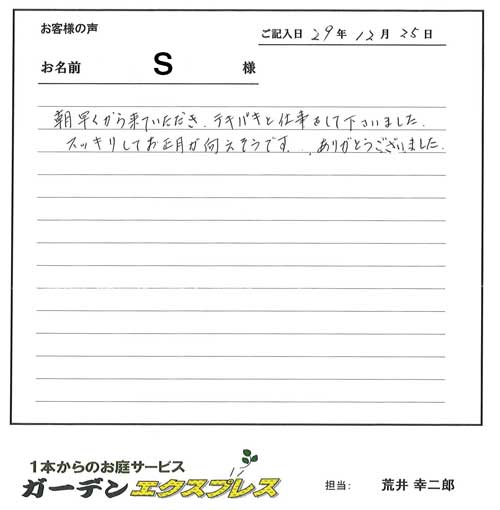 お客様の声
ご記入日 29年 12月 25日
お名前 S 様
朝早くから来ていただき、テキパキと仕事をして下さいました。
スッキリしてお正月が向えそうです。、ありがとうございました。
1本からのお庭サービス
ガーデンエクスプレス
担当: 荒井 幸二郎